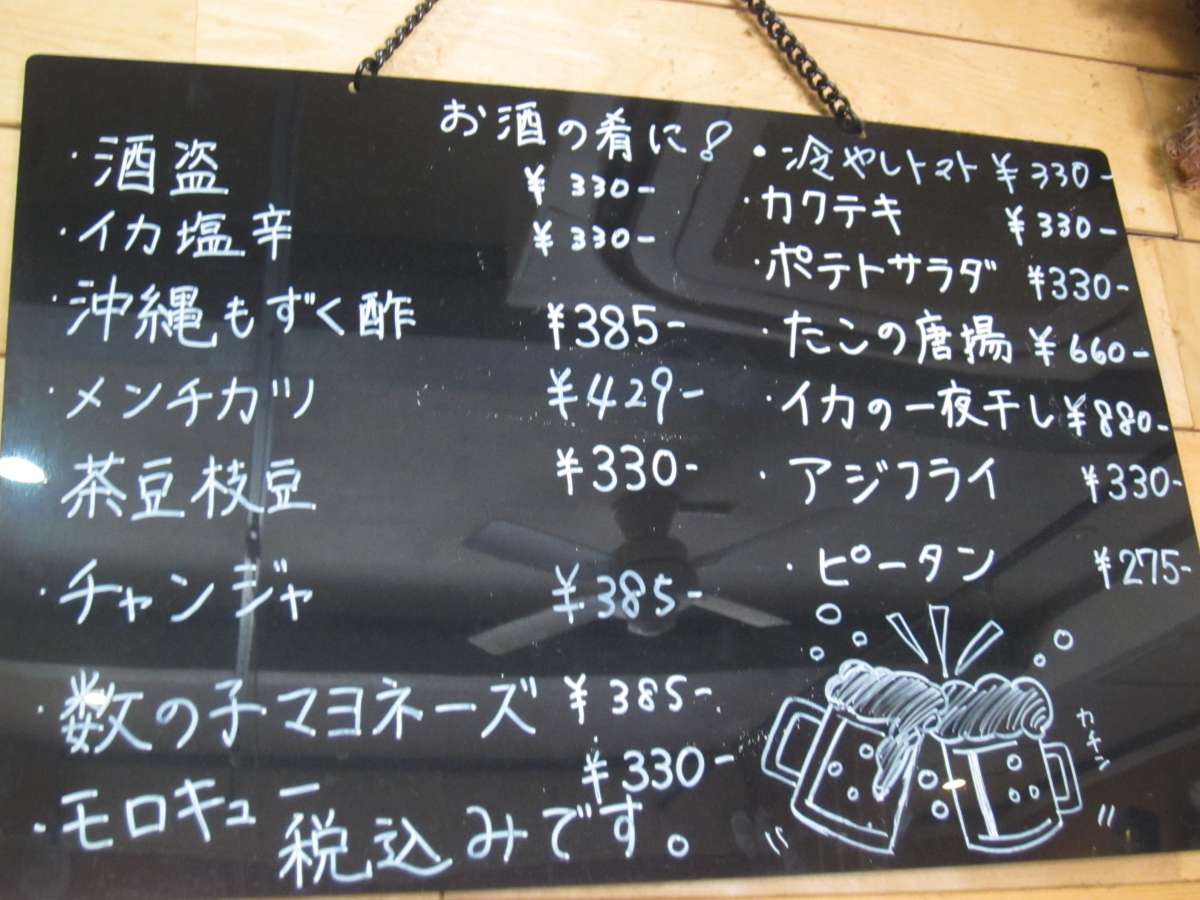 お酒の肴に!
・酒盗 ¥330-
・イカ塩辛 ¥330-
・沖縄もずく酢 ¥385-
・メンチカツ ¥429-
茶豆枝豆 ¥330-
・チャンジャ ¥385-
・数の子マヨネーズ ¥385-
・モロキュー ¥330-
税込みです。
・冷やしトマト ¥330-
・カクテキ ¥330-
・ポテトサラダ ¥330-
・たこの唐揚 ¥660-
・イカの一夜干し ¥880-
・アジフライ ¥330-
・ピータン ¥275-
カチン